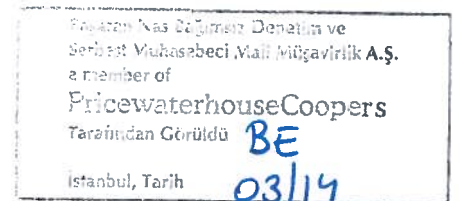 Başaran Nas Bağımsız Denetim ve
Serbest Muhasebeci Mali Müşavirlik A.Ş.
a member of
PricewaterhouseCoopers
Tarafından Görüldü BE
İstanbul, Tarih 03/14